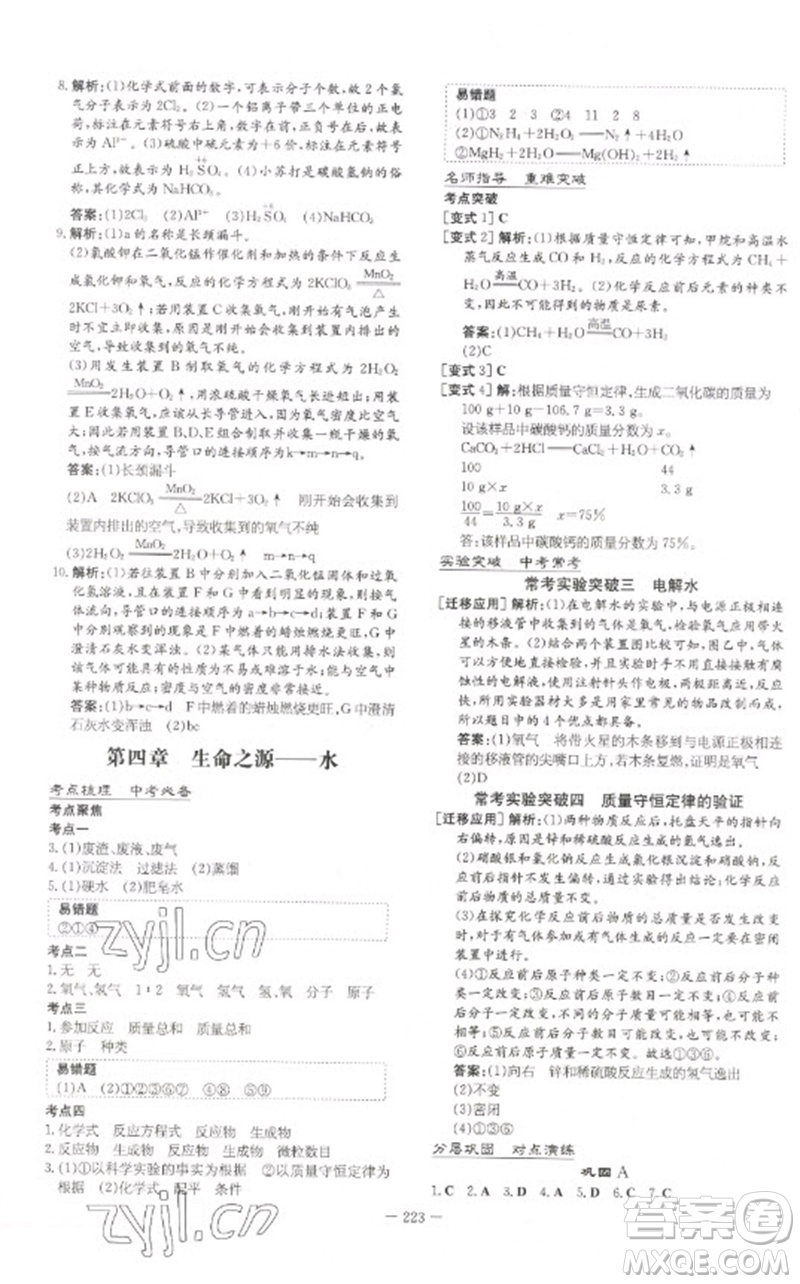 8. 解析:(1)化学式前面的数字,可以表示分子个数,故 2 个氯
气分子表示为 2Cl₂。(2)一个铝离子带有三个单位的正电
荷,标注在元素符号右上角,数字在前,正负号在后,故
表示为 Al³⁺。(3)硫酸中硫元素的化合价为+6价,标注在
元素符号正上方:H₂SO₄。(4)小苏打是碳酸氢钠的俗称,
故表示为 NaHCO₃。
答案:(1)2Cl₂ (2)Al³⁺ (3)H₂SO₄ (4)NaHCO₃
9. 解析:(1)a 的名称是长颈漏斗。
(2)氯酸钾在二氧化锰作催化剂和加热的条件下反应
生成氯化钾和氧气,反应的化学方程式为 2KClO₃ MnO₂ △
2KCl+3O₂↑;若用装置 C 收集氧气,刚开始有气泡产生
时不宜立即收集,原因是刚开始排出的气体是装置内的
空气,导致收集到的氧气不纯。
(3)用发生装置 B 制取氧气的化学方程式为 2H₂O₂
MnO₂ 2H₂O+O₂↑,用浓硫酸干燥氧气,根据装置图,若用装
置 E 收集氧气,应该从长导管进入,因为氧气的密度比
空气大,现将装置 B、D、E 组合制取并收集干燥的氧气,
按气流方向,导管口的连接顺序为 m→n→q。
答案:(1)长颈漏斗
(2)A 2KClO₃ MnO₂ △ 2KCl+3O₂↑ 刚开始收集到
装置内排出的空气,导致收集到的氧气不纯
(3)2H₂O₂ MnO₂ 2H₂O+O₂↑ m→n→q
10. 解析:(1)若往装置 A 中分别加入二氧化锰固体和过氧
化氢溶液,且在 F、G 中都能看到明显的现象,则导管口
的连接顺序为 a→b→c→d。在实验过程中,F、G 中分
别观察到的现象是 F 中燃着的蜡烛燃烧更旺,G 中
澄清石灰水变浑浊。(2)某气体只能用排水法收集,则
该气体不能用排空气法收集,可能的原因是与空气中
某种物质反应,有毒会污染空气。
答案:(1)b→c→d F 中燃着的蜡烛燃烧更旺,G 中澄清
石灰水变浑浊 (2)bc
第四章 生命之源——水
考点梳理 中考必备
考点聚焦
考点一
3. (1)废渣、废液、废气
4. (1)沉淀法 过滤法 (2)蒸馏
5. (1)硬水 (2)肥皂水
易错题
②①④
考点二
1. 无 无
2. 氧气、氢气 1∶2 氧气 氢气 氢、氧 分子 原子
考点三
1. 参加反应 质量总和 质量总和
2. 原子 种类
易错题
(1)A (2)①②③⑥⑦ ④⑧ ⑤⑨
考点四
1. 化学式 反应方程式 反应物 生成物
2. 反应物 生成物 反应物 生成物 微粒数目
3. (1)①以科学实验的事实为根据 ②以质量守恒定律为
根据 (2)化学式 配平 条件
易错题
(1)①3 2 3 ②4 11 2 8
(2)①N₂H₄+2H₂O₂══N₂↑+4H₂O
②MgH₂+2H₂O══Mg(OH)₂+2H₂↑
名师指导 重难突破
考点突破
[变式 1] C
[变式 2] 解析:(1)根据质量守恒定律可知,甲烷和高温水
蒸气反应生成一氧化碳和氢气,反应的方程式为 CH₄+
H₂O 高温 CO+3H₂。(2)化学反应前后元素的种类不
变,因此不可能得到的物质是尿素。
答案:(1)CH₄+H₂O 高温 CO+3H₂
(2)C
[变式 3] C
[变式 4] 解:根据质量守恒定律,生成二氧化碳的质量为
100 g+10 g−106.7 g=3.3 g。
设该样品中碳酸钙的质量分数为 x。
CaCO₃+2HCl══CaCl₂+H₂O+CO₂↑
100 44
10 g×x 3.3 g
100/44=10 g×x/3.3 g x=75%
答:该样品中碳酸钙的质量分数为 75%。
实验突破 中考常考
常考实验突破三 电解水
[迁移应用] 解析:(1)在电解水的实验中,与电源正极相连
接的移液管中收集到的气体是氧气,检验氧气可用带火
星的木条。(2)实验方案中,两个实验都可以图乙中,可
打开开关直接检验,操作方便;电解水常加入有一定
腐蚀性的电解液,使用注射针头不直接用手接触,更安
全。实验器材大多是用家里常见的用品改装,方便易得,
所以题目中的 4 个优点都具备。
答案:(1)氧气 将带火星的木条移到与电源正极相连接
的移液管的尖嘴口上,打开开关,木条复燃,证明是氧气
(2)D
常考实验突破四 质量守恒定律的验证
[迁移应用] 解析:(1)两种物质反应后,托盘天平的指针向
右偏转,反应后锌和稀硫酸反应生成的氢气逸出。
(2)硝酸银和氯化钠反应生成氯化银沉淀和硝酸钠,反
应前后指针不发生偏转,因为反应没有气体生成或参加。
(3)在探究化学反应前后物质的总质量是否发生改变
时,对于有气体参加或有气体生成的反应一定要在密闭
装置中进行。
(4)①反应前后原子种类一定不变;②反应前后分子种
类一定改变;③反应前后原子数目一定不变;④反应前
后分子数目可能改变;⑤反应前后原子质量一定不变;
⑥反应前后元素种类一定不变,故填①③⑤⑥。
答案:(1)向右 锌和稀硫酸反应生成的氢气逸出
(2)不变
(3)密闭
(4)①③⑤⑥
分层巩固 对点演练
巩固 A
1. C 2. A 3. D 4. A 5. D 6. C 7. C
— 223 —
zyjl.cn
zyjl.cn
答案卷
MXQE.COM